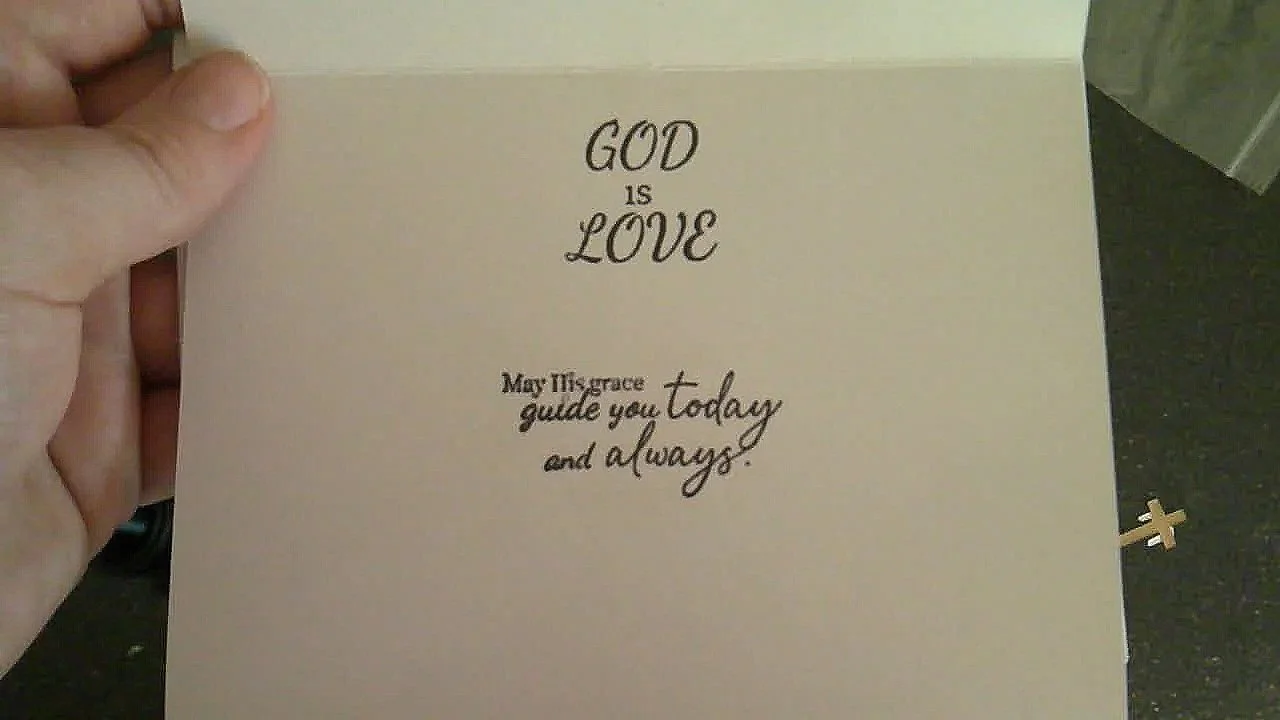 GOD
IS
LOVE
May His grace
guide you today
and always.